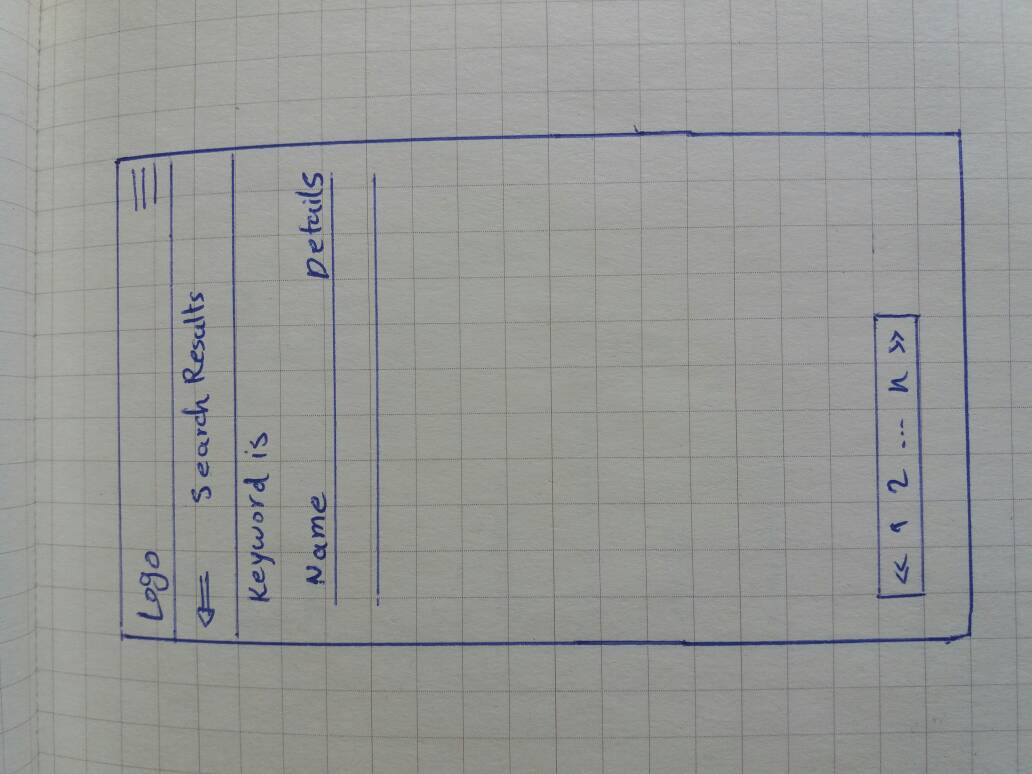 Logo
⇐ Search Results
Keyword is
Name Details
« 1 2 ... n »